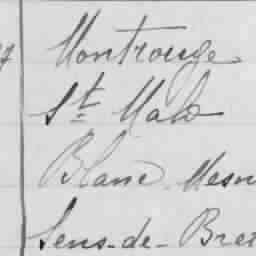 Montrouge
St Malo
Blanc Mesn
Sens-de-Bret